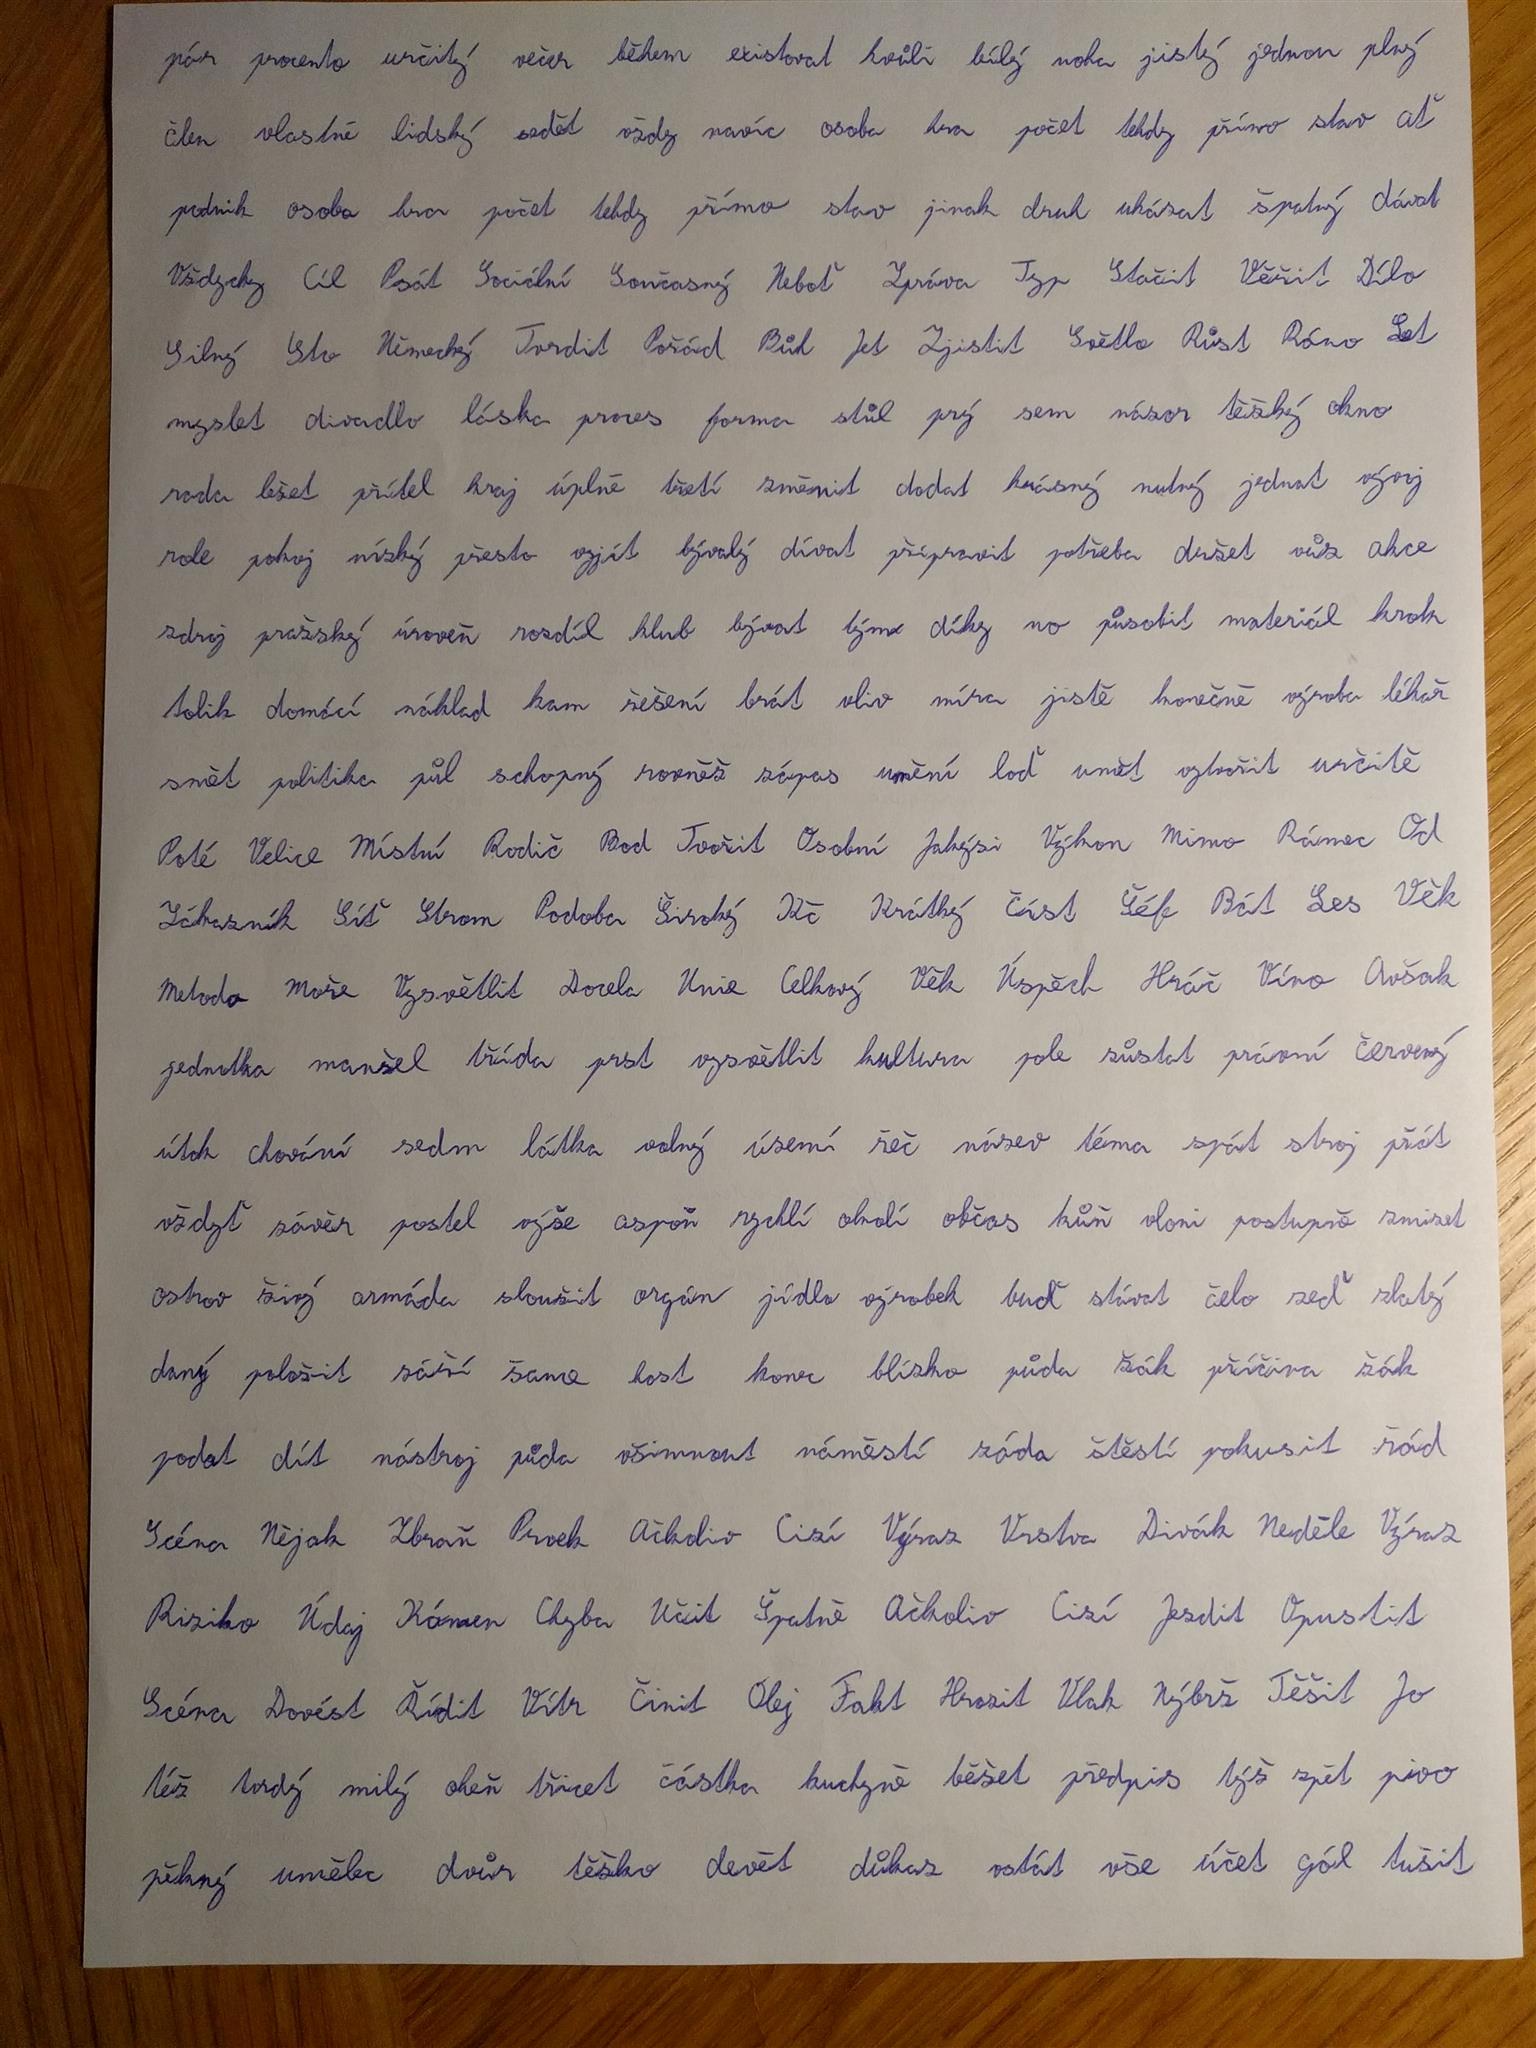 pár procento určitý večer během existovat kvůli bílý noha jistý jednou plný
člen vlastně lidský sedět vždy navíc osoba hra počet tehdy přímo stav ať
podnik osoba hra počet tehdy přímo stav jinak druh ukázat špatný dávat
Vždycky Cíl Psát Sociální Současný Neboť Zpráva Typ Stačit Věřit Dílo
Silný Sto Německý Tvrdit Pořád Bůh Jet Zjistit Světlo Růst Ráno Let
myslet divadlo láska proces forma stůl prý sem názor těžký okno
rada ležet přítel kraj úplně třetí změnit dodat krásný nutný jednat vývoj
role pokoj nízký přesto vyjít bývalý dívat připravit potřeba držet vůz akce
zdroj pražský úroveň rozdíl klub bývat tým díky no působit materiál krok
tolik domácí náklad kam řešení brát vliv míra jistě konečně výroba lékař
smět politika půl schopný rovněž zápas umění loď umět vytvořit určitě
Poté Velice Místní Rodič Bod Tvořit Osobní Jakýsi Výkon Mimo Rámec Od
Zákazník Síť Strom Podoba Široký Kč Krátký Část Šéf Bát Les Věk
Metoda Moře Vysvětlit Docela Unie Celkový Věk Úspěch Hráč Víno Avšak
jednotka manžel třída prst vysvětlit kultura pole zůstat právní červený
útok chování sedm látka volný území řeč název téma spát stroj přát
vždyť závěr postel výše aspoň rychlí okolí občas kůň vloni postupně zmizet
ostrov živý armáda sloužit orgán jídlo výrobek buď stávat čelo zeď zlatý
daný položit září šance host konec blízko půda žák příčina žák
podat dít nástroj půda všimnout náměstí záda štěstí pokusit řád
Scéna Nějak Zbraň Prvek Ačkoliv Cizí Výraz Vrstva Divák Neděle Výraz
Riziko Údaj Kámen Chyba Učit Špatně Ačkoliv Cizí Jezdit Opustit
Scéna Dovést Řídit Vítr Činit Olej Fakt Hrozit Vlak Nýbrž Těšit Jo
též tvrdý milý oheň třicet částka kuchyně běžet předpis týž zpět pivo
pěkný umělec dvůr těžko devět důkaz vstát vše účet gól tušit